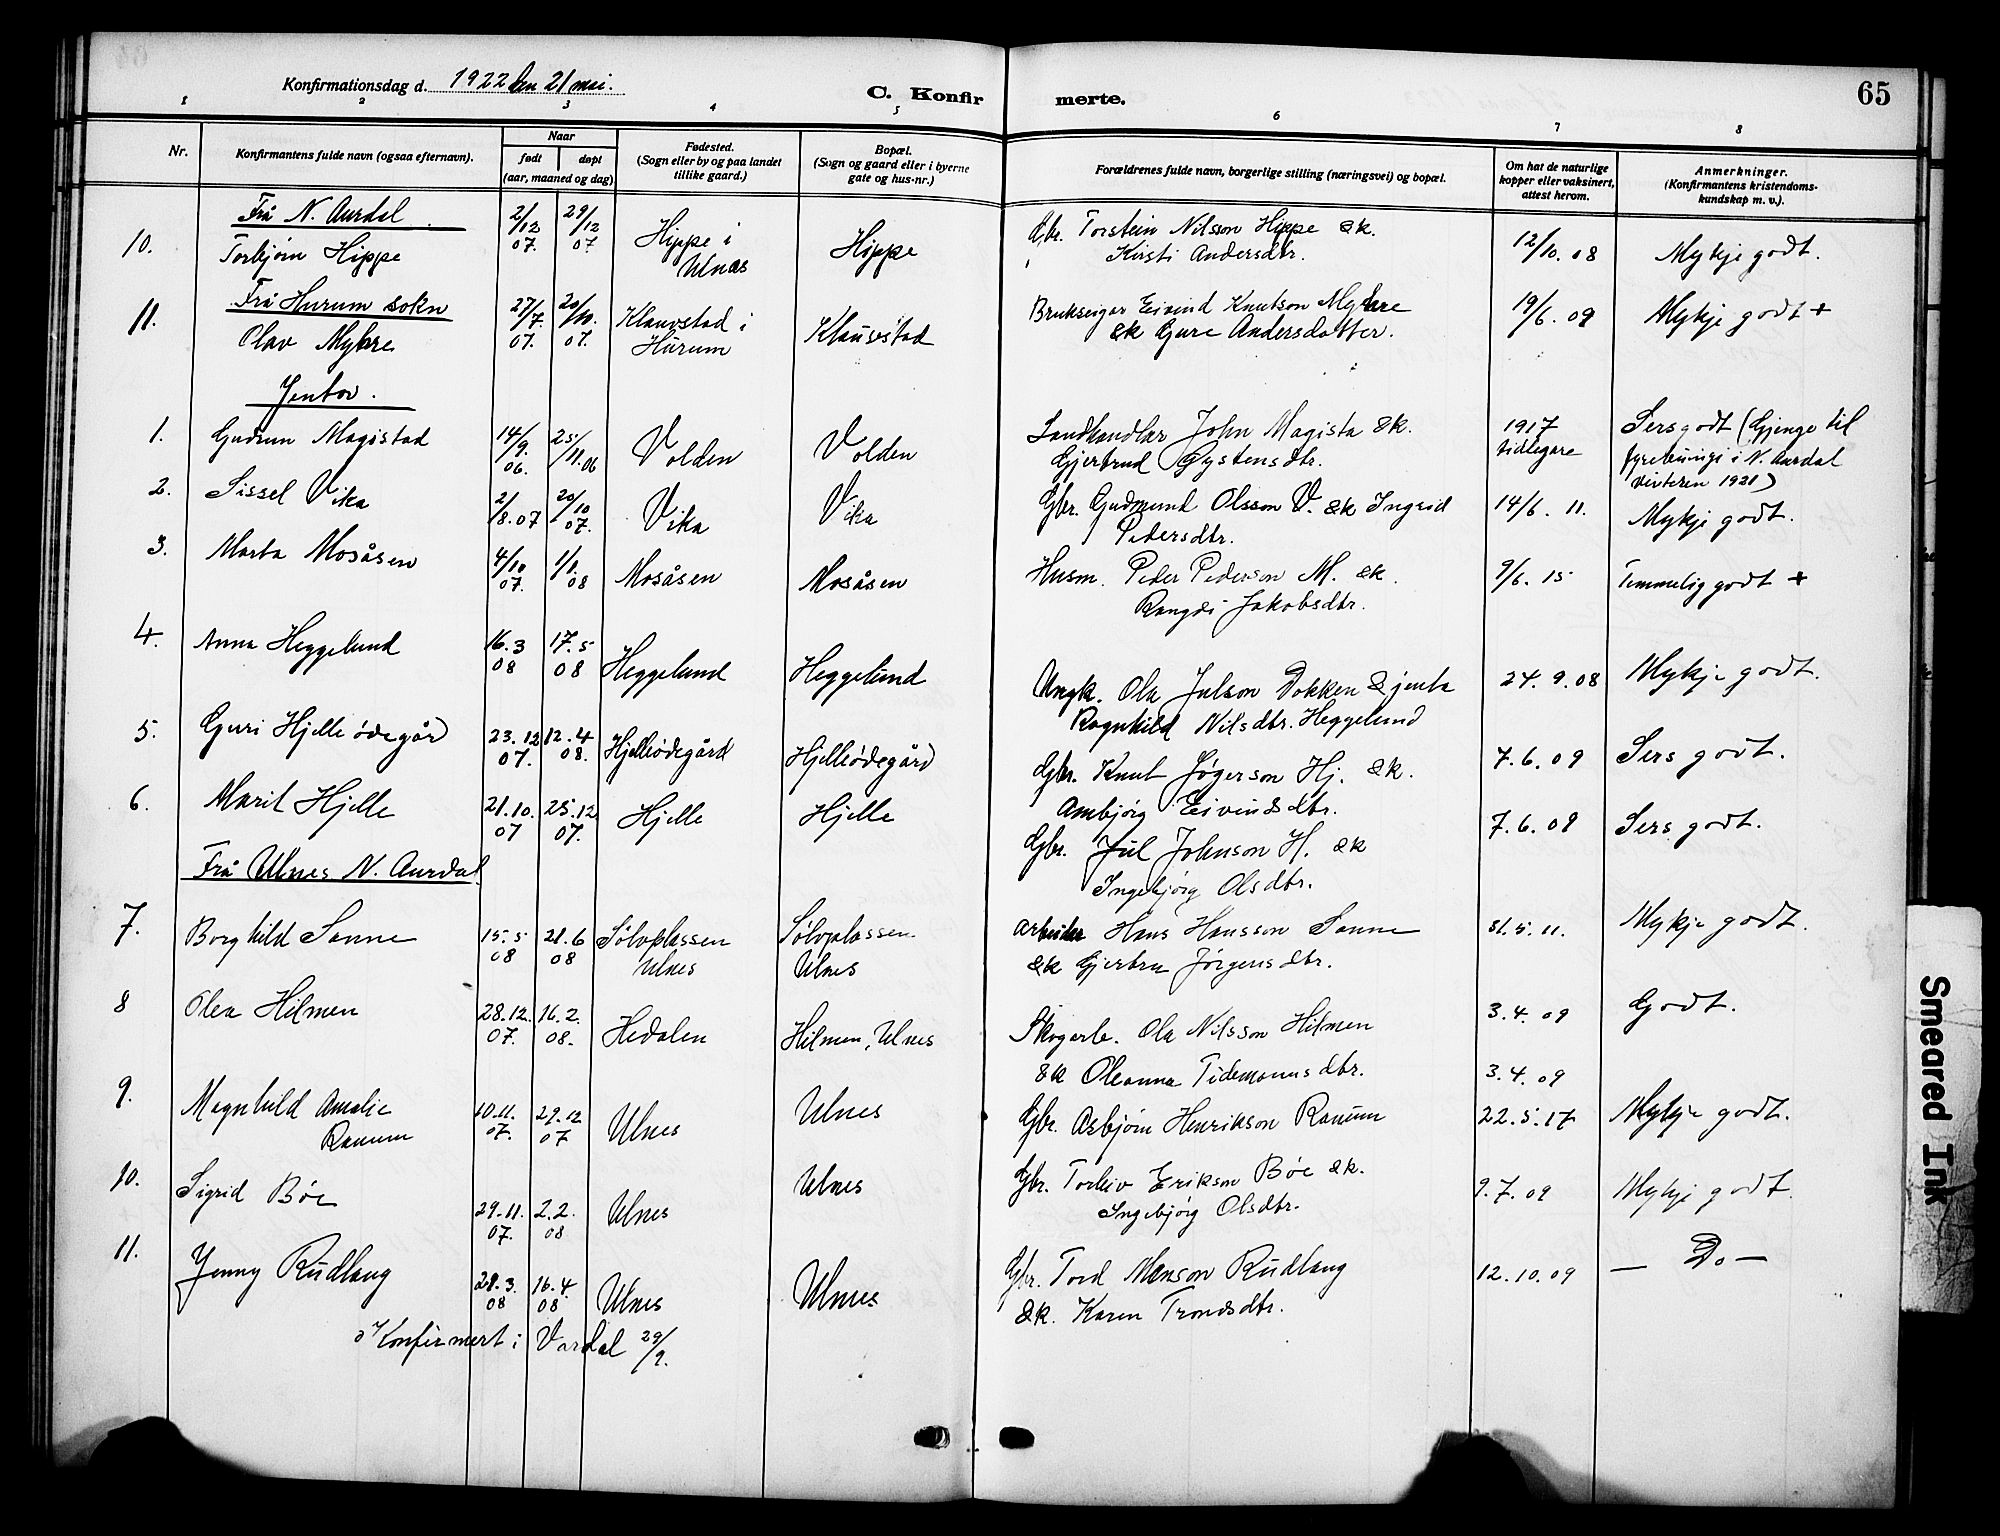 65
Konfirmationsdag d. 1922 den 21 mai.
C. Konfir merte.
1 2 3 4 5 6 7 8
Nr.
Konfirmantens fulde navn (ogsaa efternavn).
Naar
født døpt
(aar, maaned og dag)
Fødested.
(Sogn eller by og paa landet
tillike gaard.)
Bopæl.
(Sogn og gaard eller i byerne
gate og hus-nr.)
Forældrenes fulde navn, borgerlige stilling (næringsvei) og bopæl.
Om hat de naturlige
kopper eller vaksinert,
attest herom.
Anmerkninger.
(Konfirmantens kristendoms-
kundskap m. v.).
Frå N. Aurdal
10. Torbjørn Hippe 2/12 07. 29/12 07 Hippe i Hippe Gbr. Torstein Nilsson Hippe &k. 12/10. 08 Mykje godt.
Ulnes Kirsti Andersdtr.
Frå Hurum sokn
11. Olav Myhre 27/7. 07. 20/10. 07. Klauvstad i Klauvstad Brukseigar Eivind Knutson Myhre 19/6. 09 Mykje godt +
Hurum &k Gure Andersdotter.
Jentor.
1. Gudrun Magistad 14/9. 06. 25/11. 06 Volden Volden Landhandlar John Magista &k. 1917 Sers godt (Gjenge til
Gjertrud Øystensdtr. tidlegare fyrebuingi i N. Aurdal
vinteren 1921)
2. Sissel Vika 2/8. 07 20/10 07. Vika Vika Gbr. Gudmund Olsson V. &k Ingrid 14/6. 11. Mykje godt.
Pedersdtr.
3. Marta Mosåsen 4/10 07. 1/1. 08 Mosåsen Mosåsen Husm. Peder Pederson M. &k. 9/6. 15 Temmelig godt +
Rangdi Jakobsdtr.
4. Anna Heggelund 16.3 08 17.5 08 Heggelund Heggelund Ungk. Ola Julson Dokken & jenta 24. 9. 08 Mykje godt.
Ragnhild Nilsdtr. Heggelund
5. Guri Hjelleødegård 23.12 07. 12.4 08. Hjelleødegård Hjelleødegård Gbr. Knut Jøgerson Hj. &k. 7. 6. 09 Sers godt.
Ambjørg Eivindsdtr.
6. Marit Hjelle 21.10. 07 25.12 07. Hjelle Hjelle Gbr. Jul Johnson H. &k 7. 6. 09 Sers godt.
Ingebjørg Olsdtr.
Frå Ulnes N. Aurdal
7. Borghild Sanne 15.5 08 21.6 08 Sølvplassen Sølvplassen arbeider Hans Hansson Sanne 31. 5. 11. Mykje godt.
Ulnes Ulnes &k Gjertru Jørgensdtr.
8 Olea Hilmen 28.12. 07. 16.2. 08. Hedalen Hilmen, Ulnes Skogarb. Ola Nilsson Hilmen 3. 4. 09 Godt.
&k Oleanna Tidemannsdtr. 3. 4. 09
9. Magnhild Amalie 10.11. 07. 29.12 07 Ulnes Ulnes Gbr. Asbjørn Henrikson Ranum 22. 5. 17 Mykje godt.
Ranum
10. Sigrid Bøe 29.11. 07. 2.2. 08 Ulnes Ulnes Gbr. Torleiv Erikson Bøe &k. 9. 7. 09 Mykje godt.
Ingebjørg Olsdtr.
11. Jenny Rudlang 28.3. 08 16.4. 08 Ulnes Ulnes Gbr. Tord Monson Rudlang 12. 10. 09 — Do —
&k. Karen Trondsdtr.
Konfirmert i Vardal 29/9.
Smeared Ink